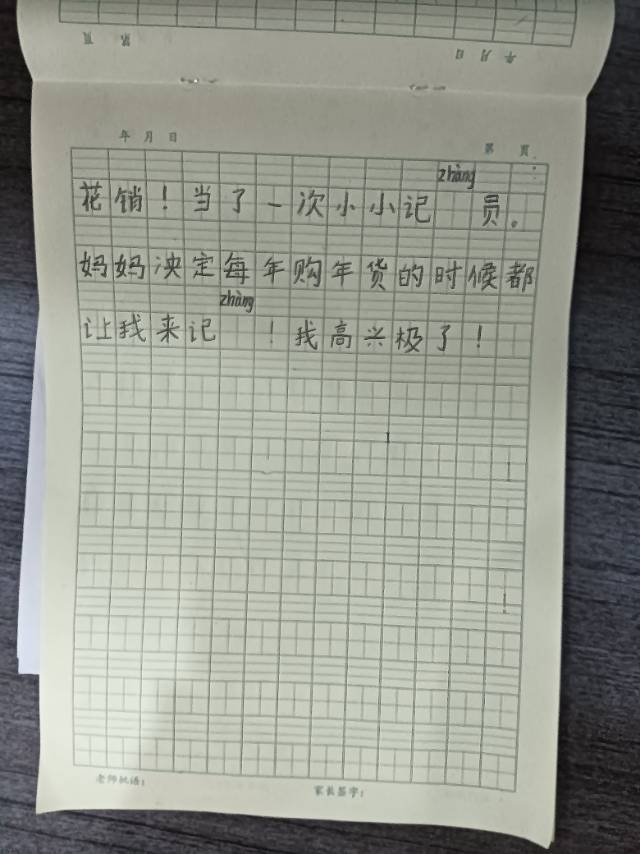 第 页
年 月 日
年 月 日
第 页
zhàng
花销！当了一次小小记 员。
妈妈决定每年购年货的时候都
zhàng
让我来记 ！我高兴极了！
老师批语：
家长签字：